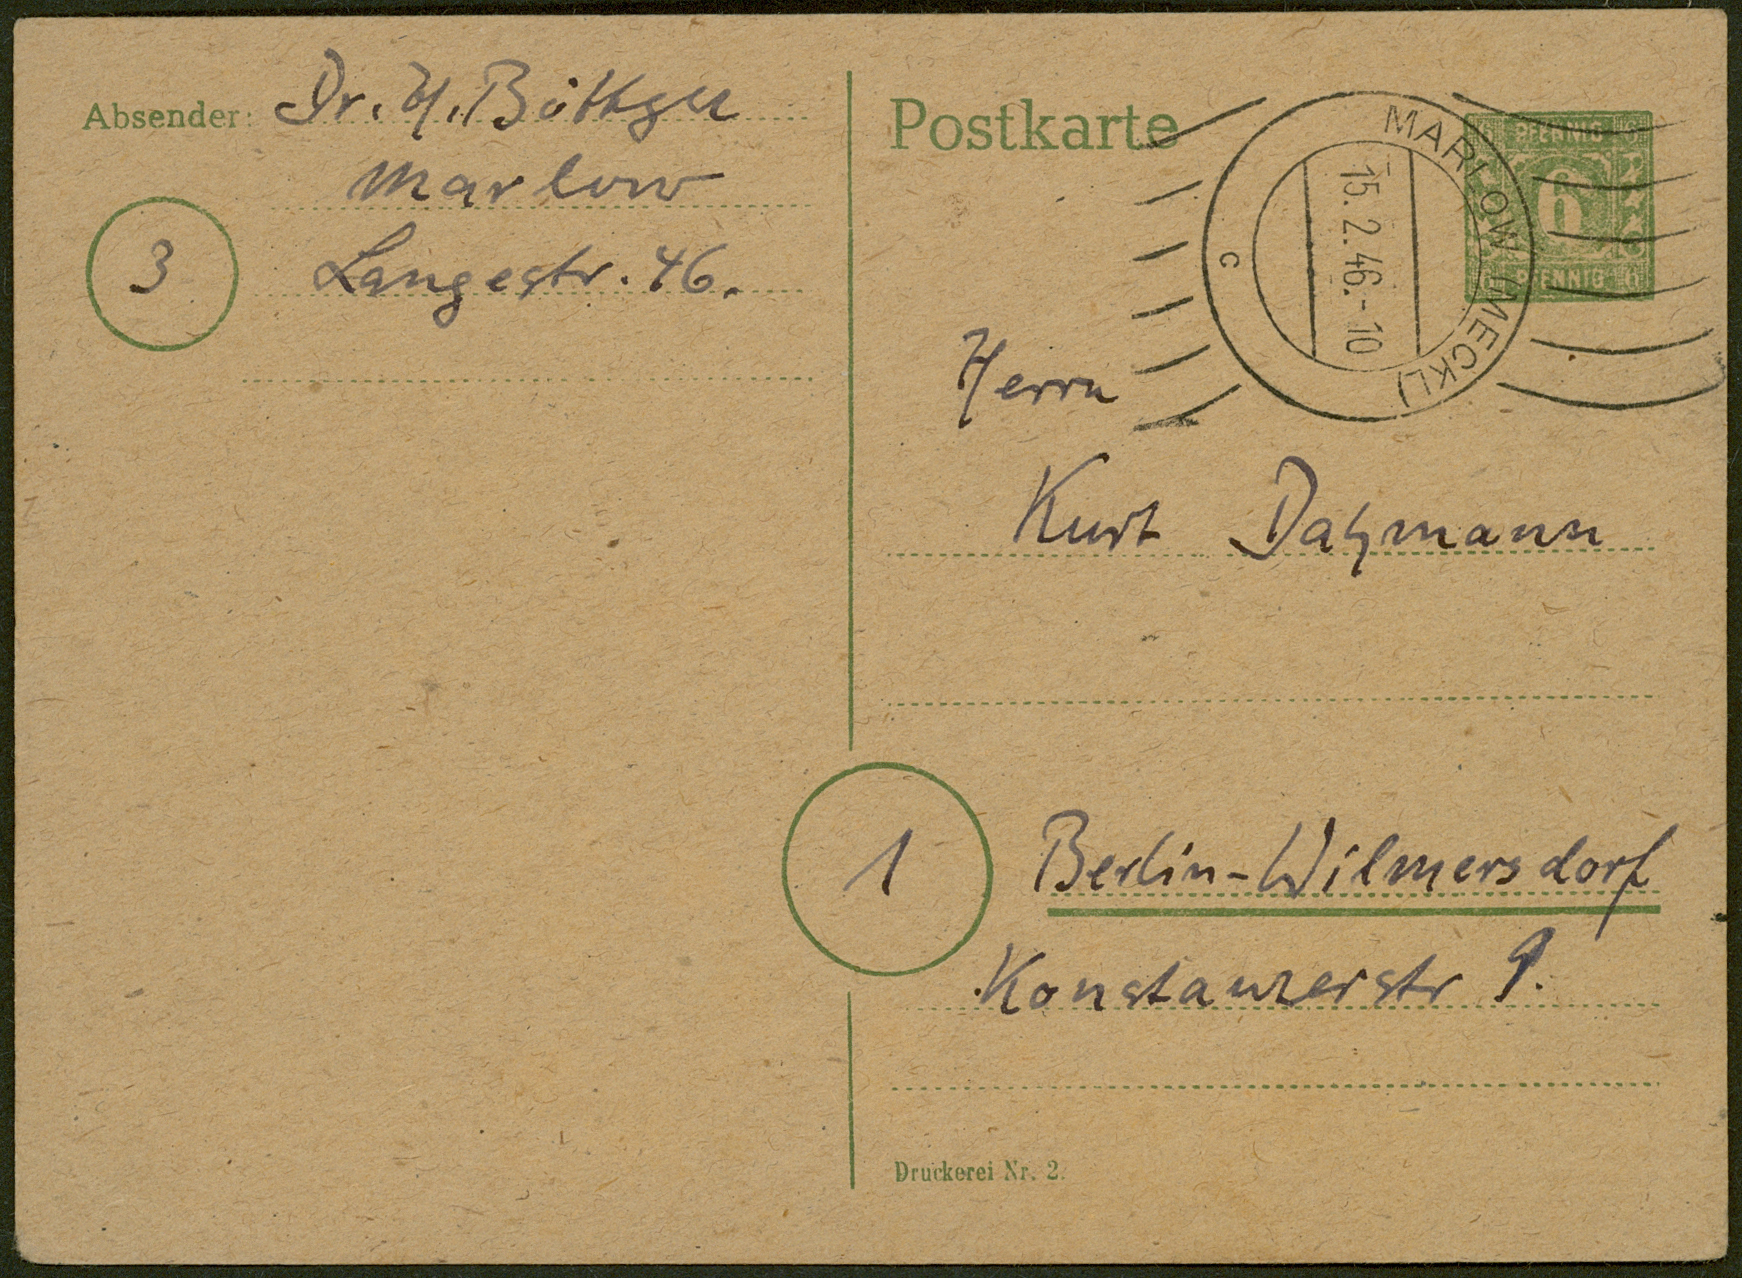 Absender: Dr. H. Böttger
Marlow
3
Langestr. 46.
Postkarte
MARLOW (MECKL)
15.2.46.-10
c
6 PFENNIG 6
6
6 PFENNIG 6
Herrn
Kurt Dahmann
1
Berlin-Wilmersdorf
Konstanzerstr 9.
Druckerei Nr. 2.